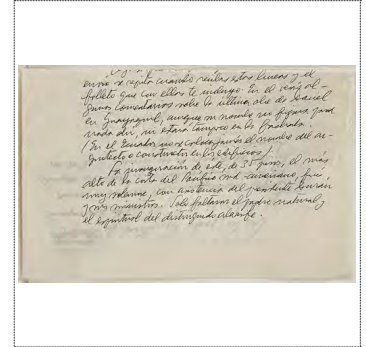 envío se repita cuando recibas estas líneas y el
folleto que con ellas te incluyo. En él verás al-
gunos comentarios sobre la última obra de
en Guayaquil, aunque mi nombre no figura para
nada ahí, ni estará tampoco en la
(En el Ecuador no se coloca jamás el nombre del ar-
quitecto o constructor en los edificios).
La inauguración de éste, de 35 pisos, el más
alto de la costa del Pacífico sud-americano, fué
muy solemne, con asistencia del presidente Durán
y sus ministros. Sólo faltaron el padre natural y
el espiritual del distinguido